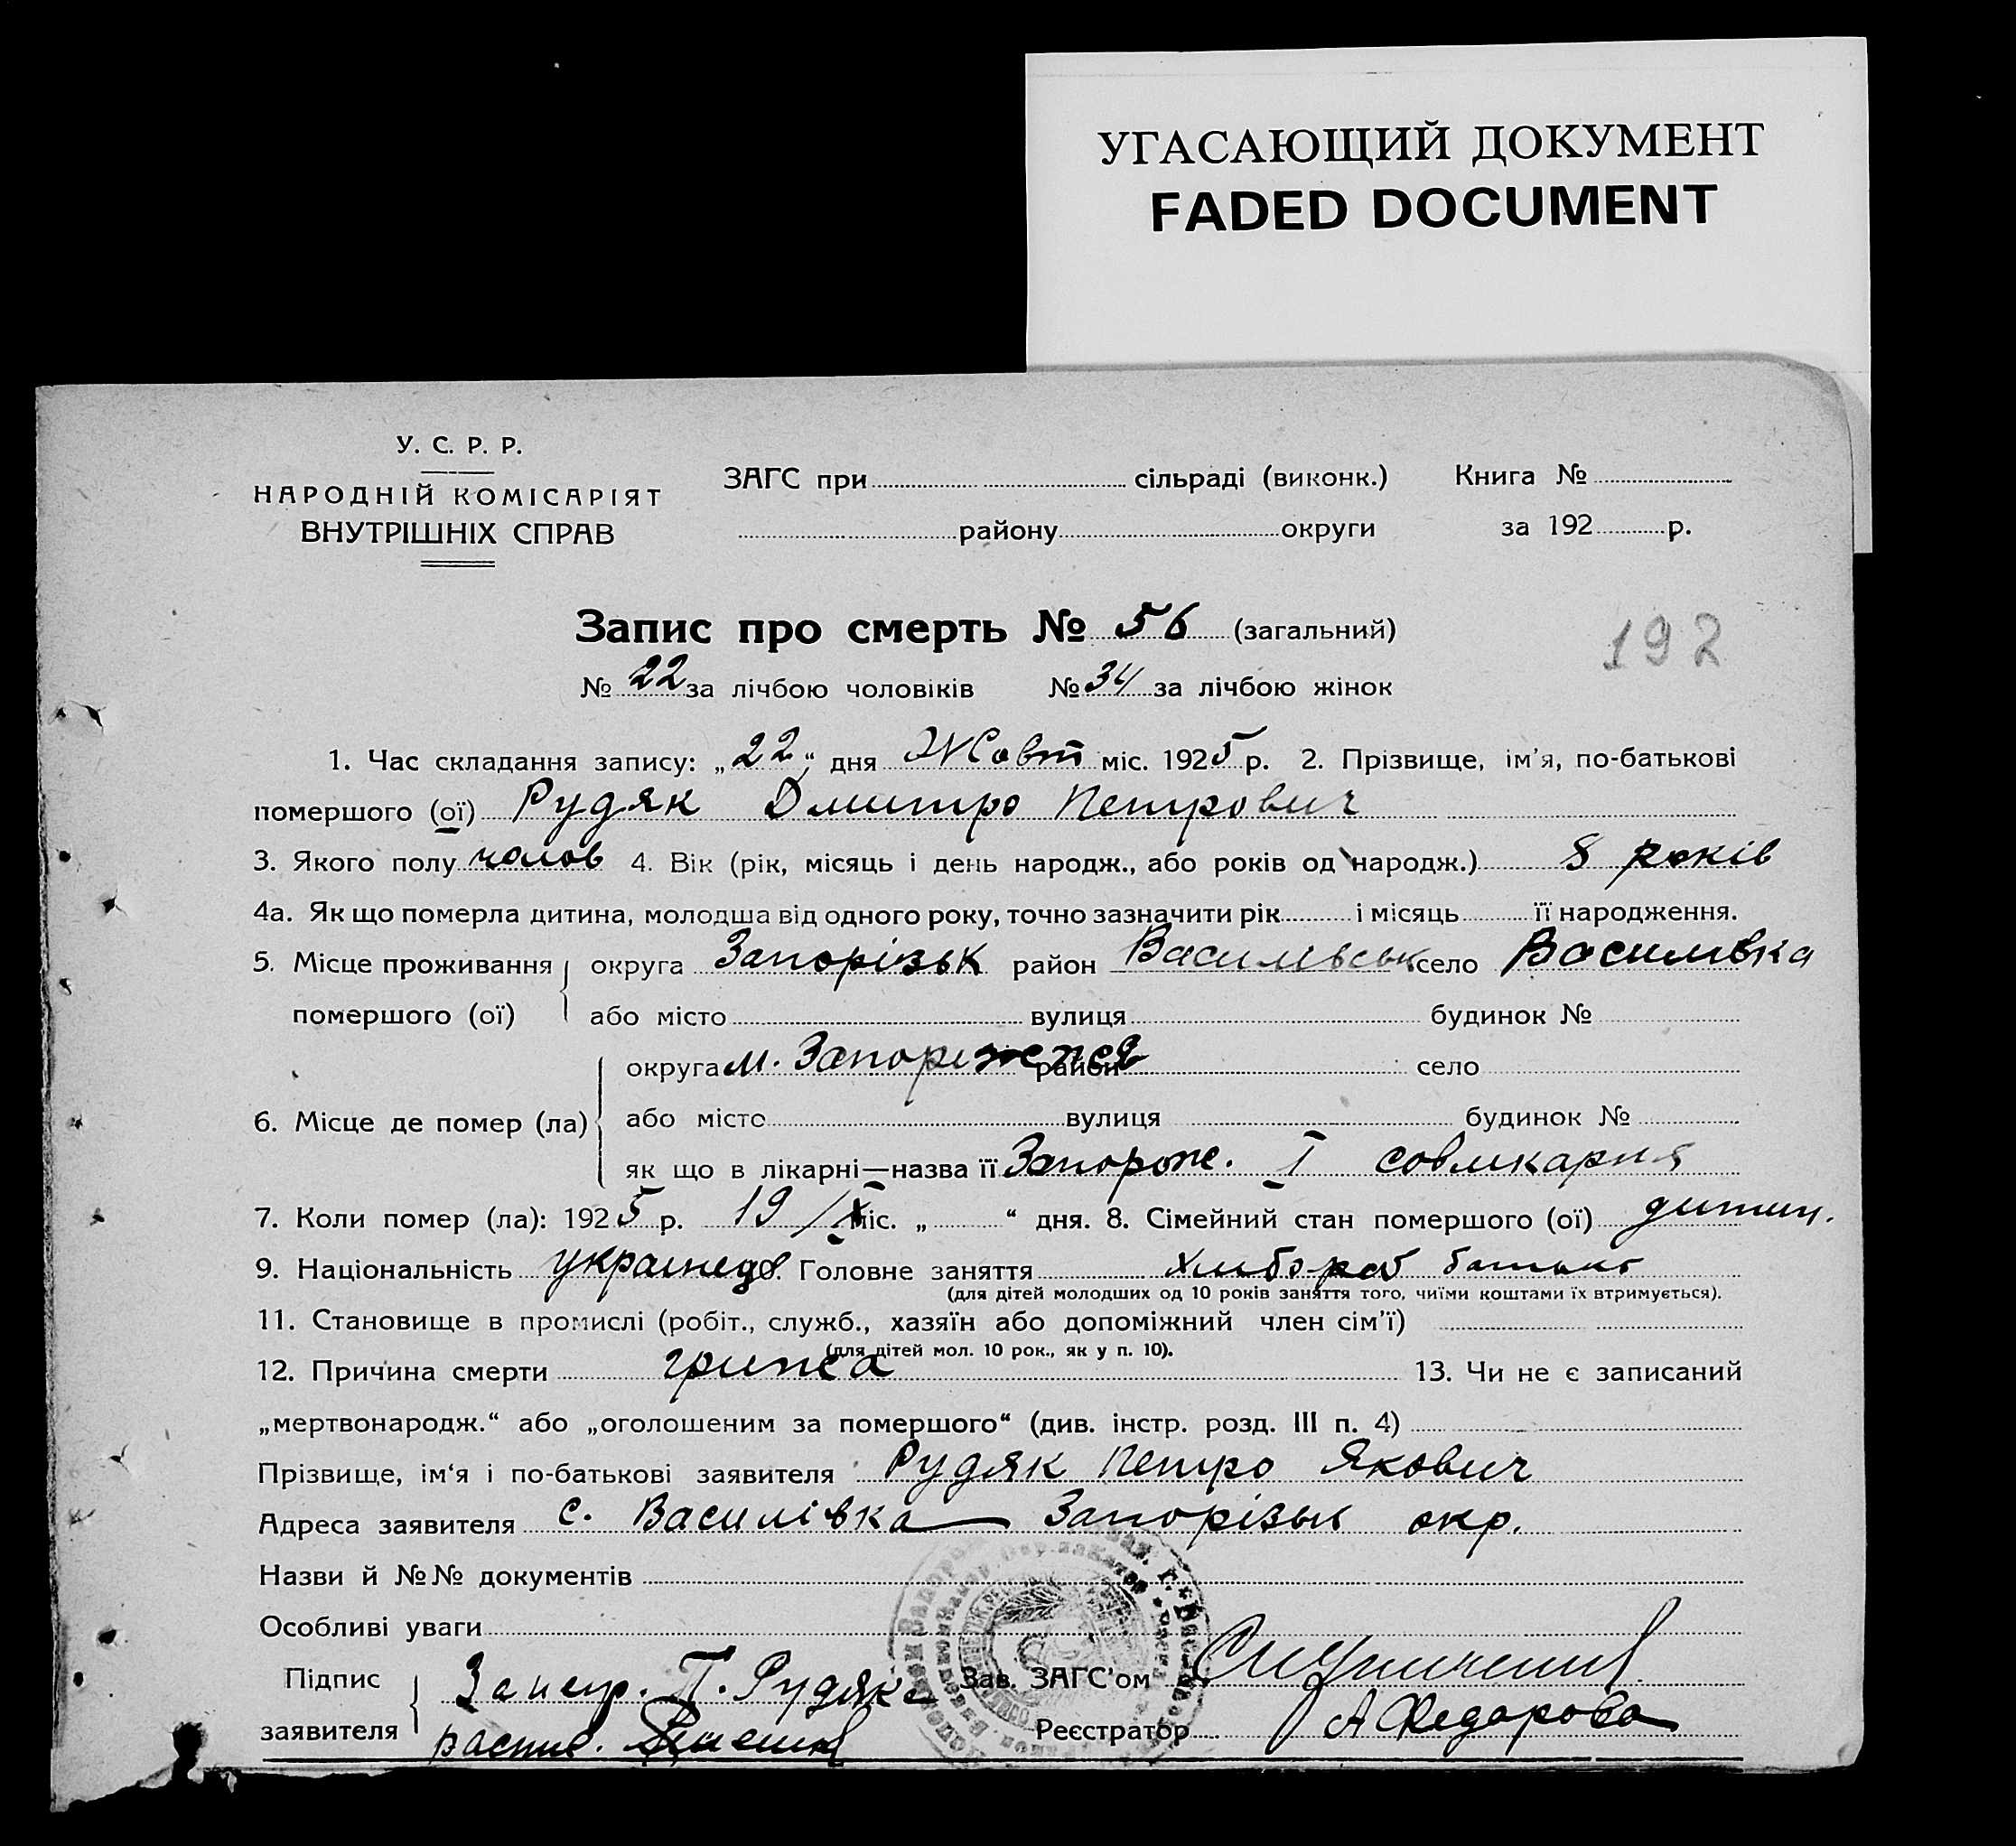 УГАСАЮЩИЙ ДОКУМЕНТ
FADED DOCUMENT
У. С. Р. Р.
НАРОДНІЙ КОМІСАРІЯТ
ВНУТРІШНІХ СПРАВ
ЗАГС при сільраді (виконк.) Книга №
району округи за 192 р.
Запис про смерть № 56 (загальний)
192
№ 22 за лічбою чоловіків № 34 за лічбою жінок
1. Час складання запису: „22“ дня Жовт міс. 1925 р. 2. Прізвище, ім'я, по-батькові
помершого (ої) Рудяк Дмитро Петрович
3. Якого полу чолов 4. Вік (рік, місяць і день народж., або років од народж.) 8 років
4а. Як що померла дитина, молодша від одного року, точно зазначити рік і місяць її народження.
5. Місце проживання округа Запорізьк район Василівськ село Василівка
помершого (ої) або місто вулиця будинок №
округа м. Запоріжжя район село
6. Місце де помер (ла) або місто вулиця будинок №
як що в лікарні—назва її Запорож. I совлікарня
7. Коли помер (ла): 1925 р. 19/X міс. „ “ дня. 8. Сімейний стан помершого (ої) дитин.
9. Національність українець 10. Головне заняття хлібороб батько
(для дітей молодших од 10 років заняття того, чиїми коштами їх втримується).
11. Становище в промислі (робіт., служб., хазяїн або допоміжний член сім'ї)
(для дітей мол. 10 рок., як у п. 10).
12. Причина смерти грижа 13. Чи не є записаний
„мертвонародж.“ або „оголошеним за помершого“ (див. інстр. розд. III п. 4)
Прізвище, ім'я і по-батькові заявителя Рудяк Петро Якович
Адреса заявителя с. Василівка Запорізьк окр.
Назви й №№ документів
Особливі уваги
Підпис За непр. П. Рудяка Зав. ЗАГС'ом
заявителя распис. Реєстратор А Федорова